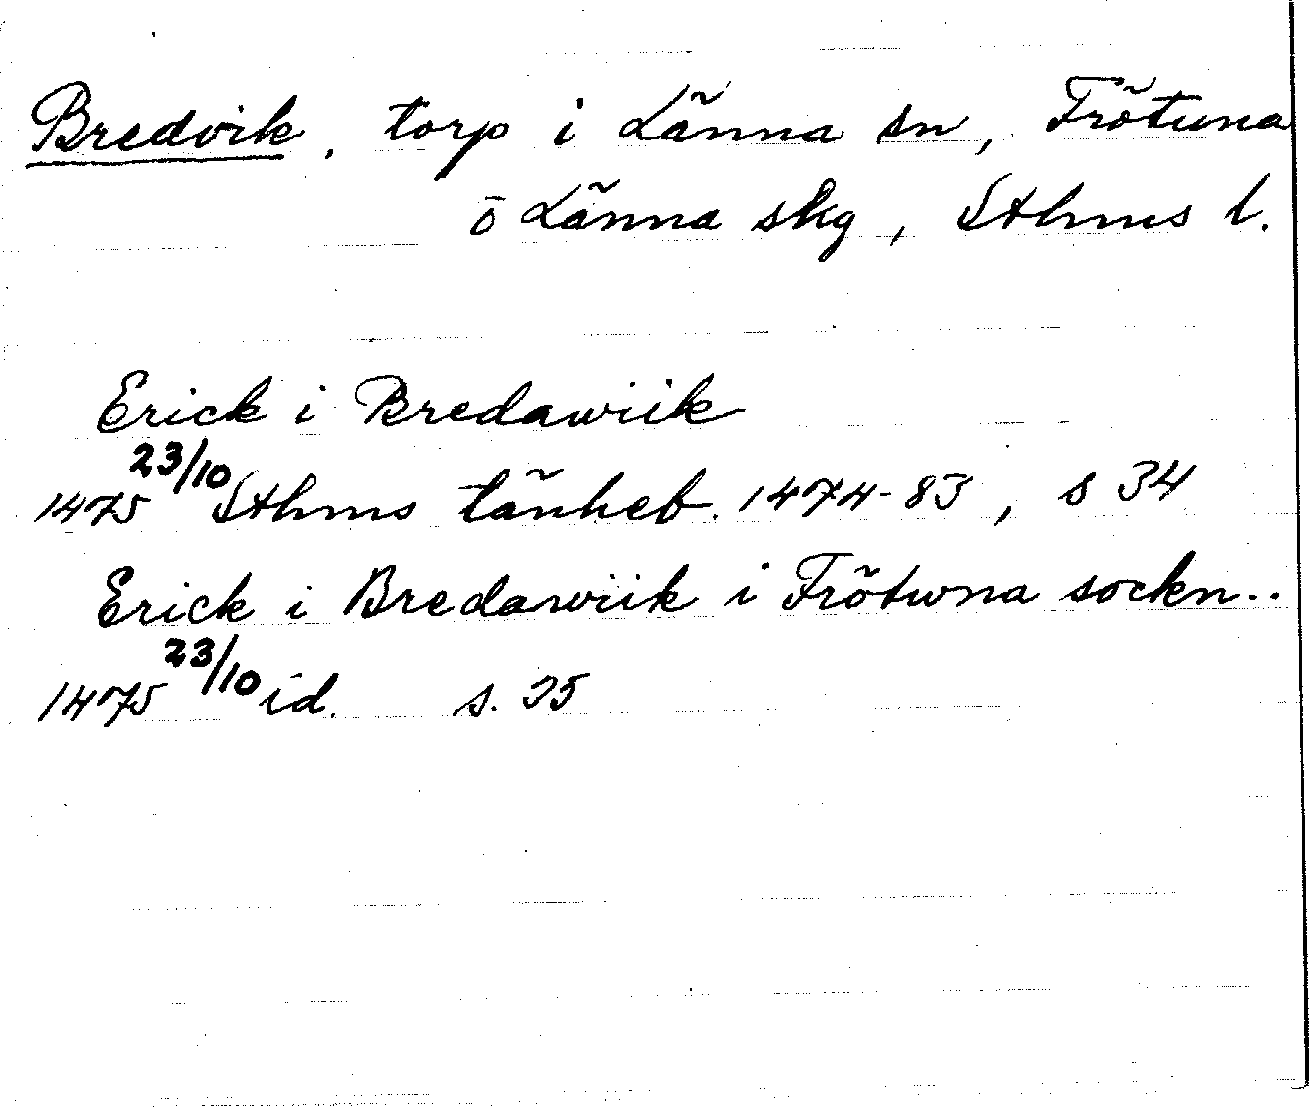 Bredvik, torp i Länna sn, Frötuna
o Länna skg, Sthms l.
Erick i Bredawiik
1475 23/10 Sthms tänkeb. 1474-83, s 34
Erick i Bredawiik i Frötwna sockn..
1475 23/10 id. s. 35